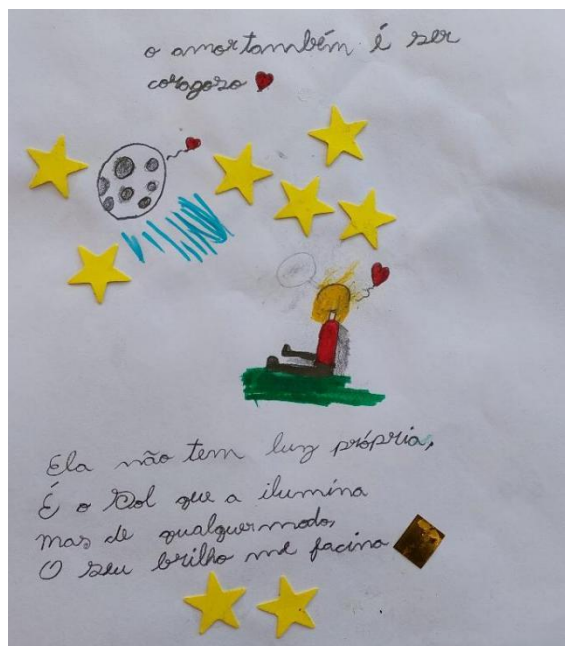 o amor também é ser
coragoso
Ela não tem luz própria,
É o Sol que a ilumina
mas de qualquer modo,
O seu brilho me facina